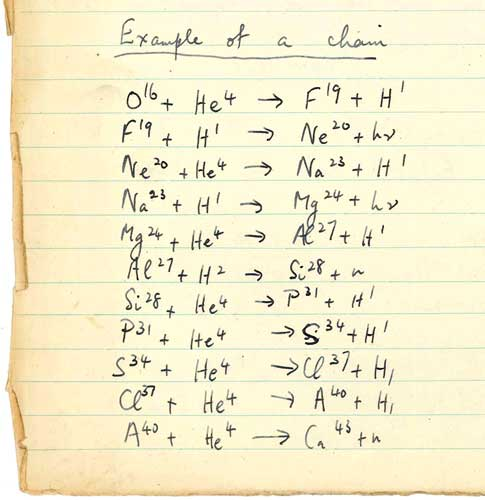 Example of a chain
O¹⁶ + He⁴ → F¹⁹ + H¹
F¹⁹ + H¹ → Ne²⁰ + hν
Ne²⁰ + He⁴ → Na²³ + H¹
Na²³ + H¹ → Mg²⁴ + hν
Mg²⁴ + He⁴ → Al²⁷ + H¹
Al²⁷ + H² → Si²⁸ + n
Si²⁸ + He⁴ → P³¹ + H¹
P³¹ + He⁴ → S³⁴ + H¹
S³⁴ + He⁴ → Cl³⁷ + H₁
Cl³⁷ + He⁴ → A⁴⁰ + H₁
A⁴⁰ + He⁴ → Ca⁴³ + n